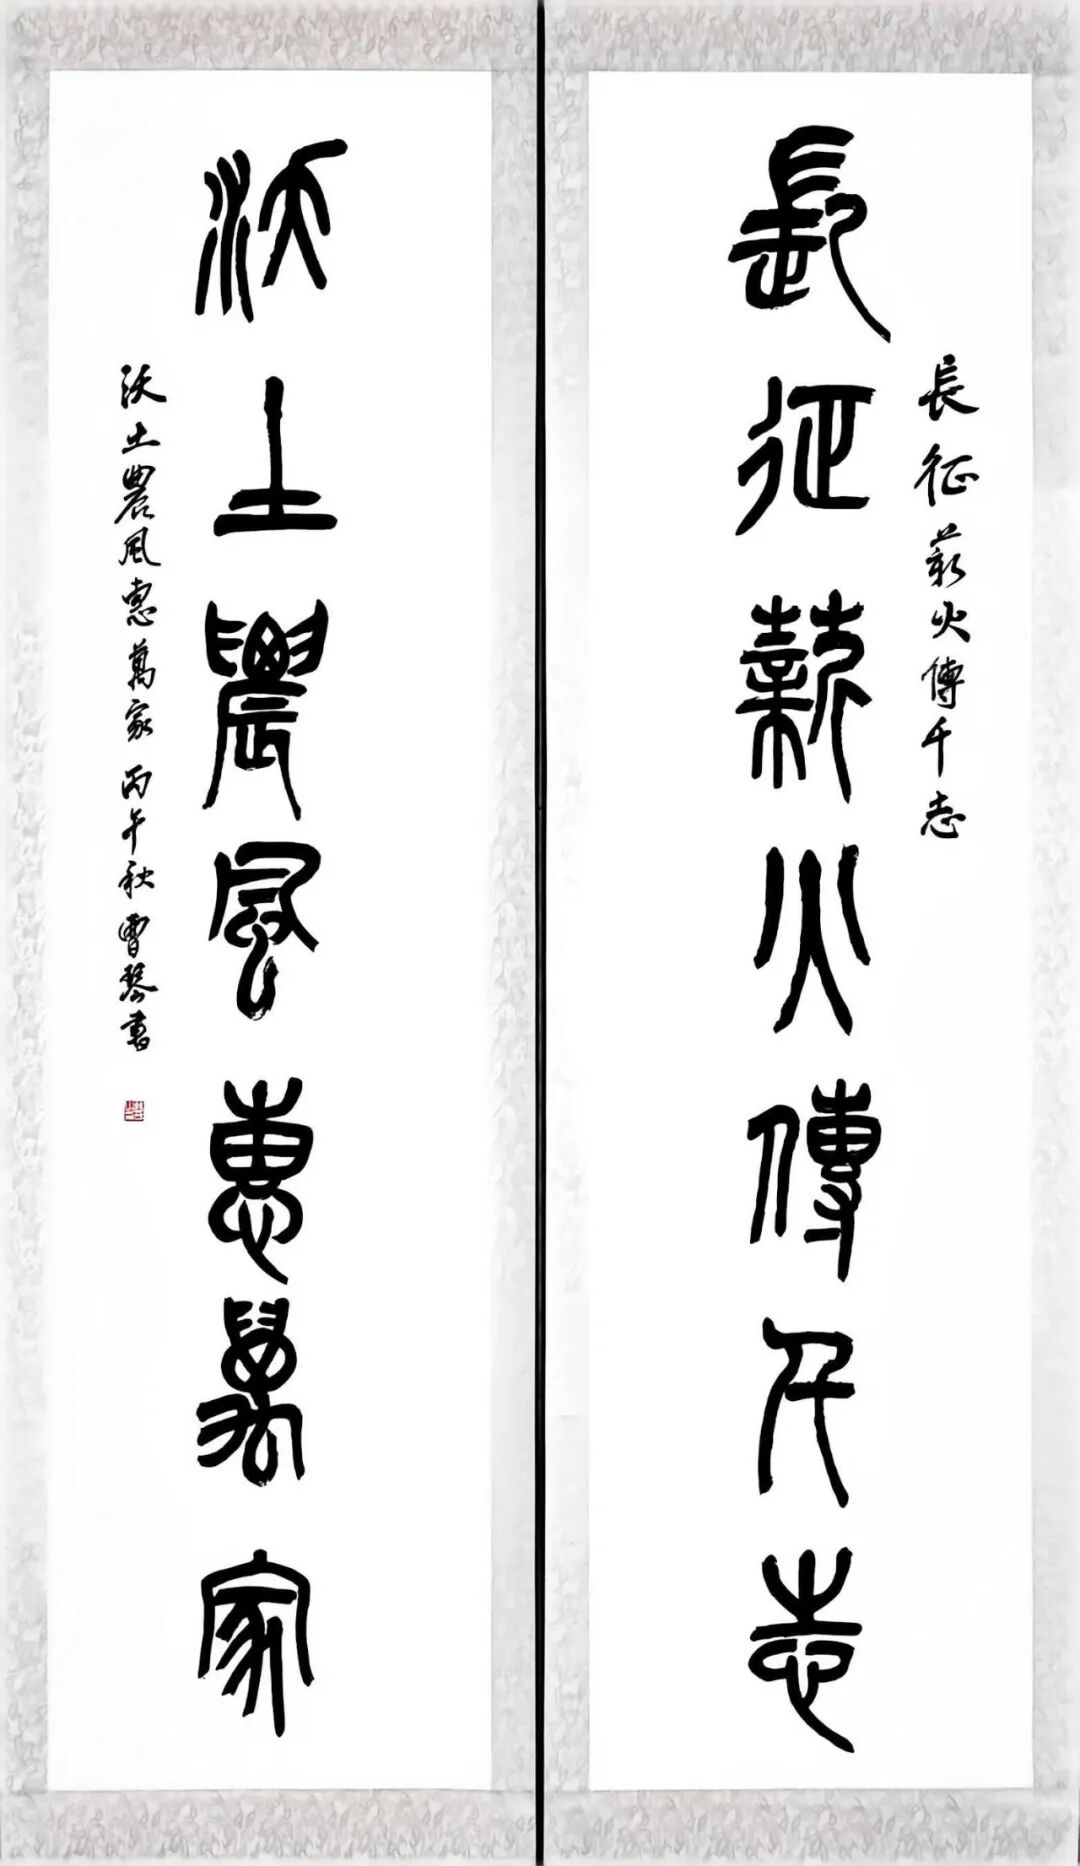 長征薪火傳千志
長征薪火傳千志
沃土農風惠萬家
沃土農風惠萬家 丙午秋 曹琴書